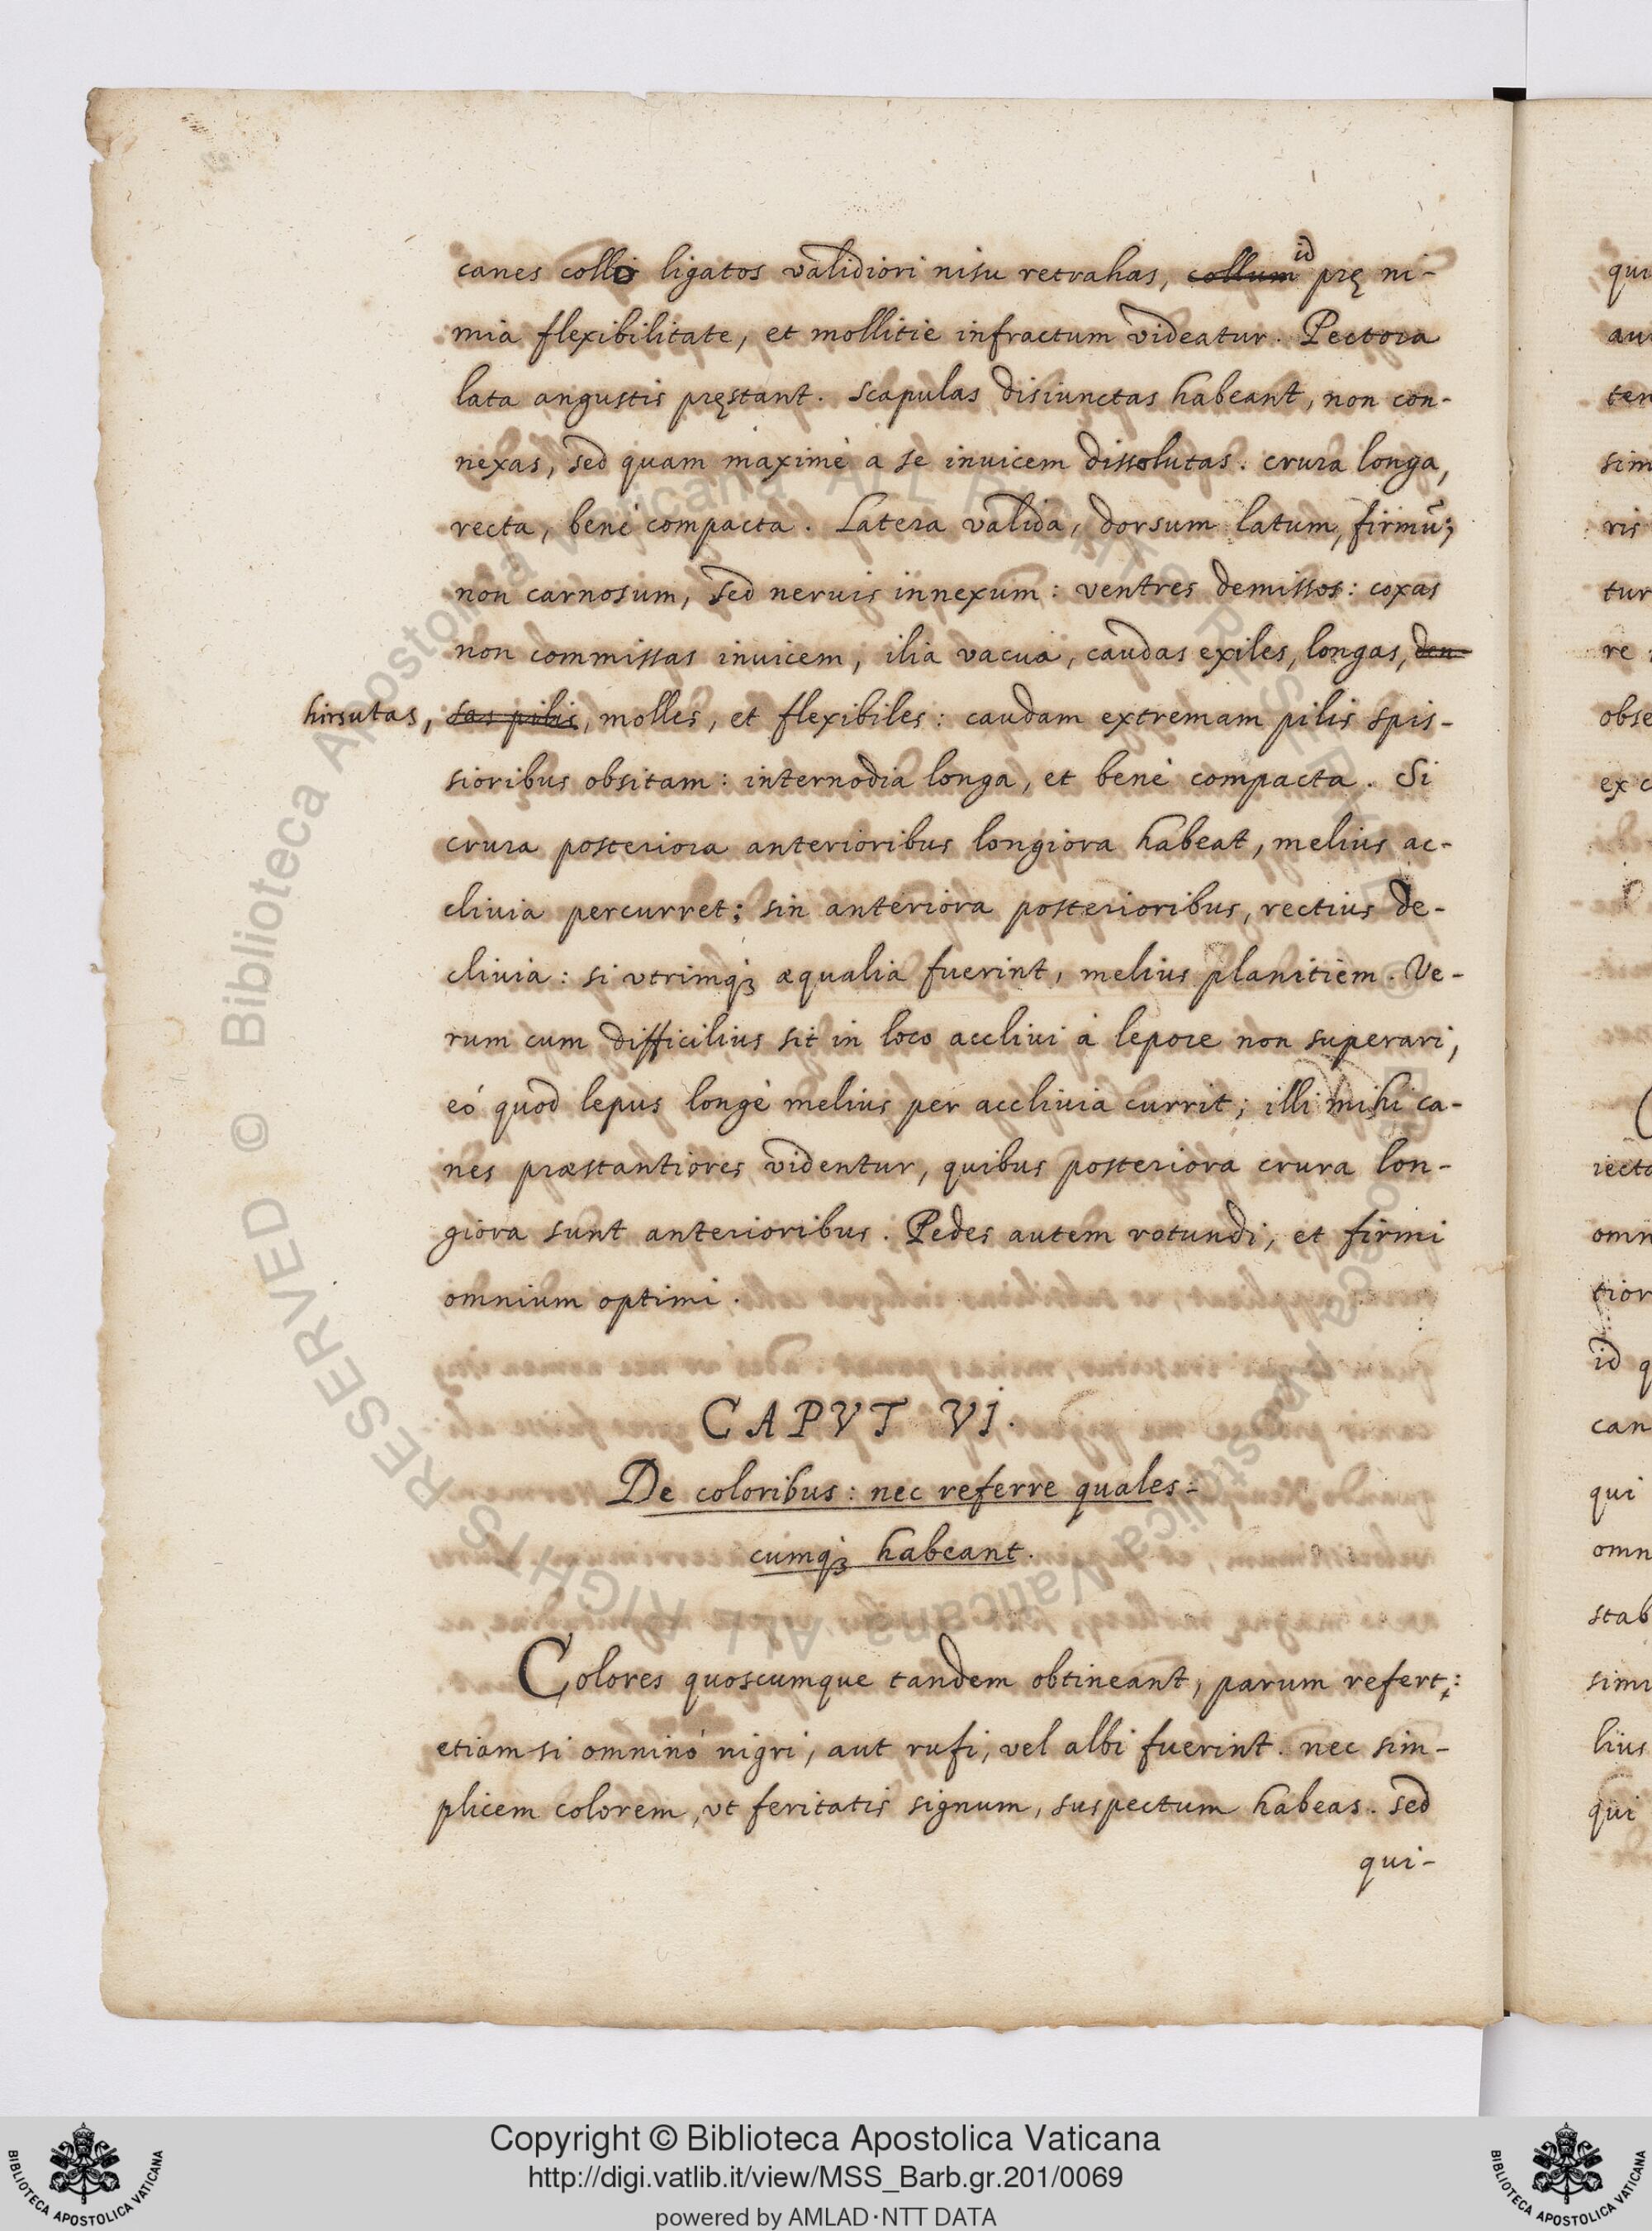 canes collo ligatos validiori nisu retrahas, collum id prę ni-
mia flexibilitate, et mollitie infractum videatur. Pectora
lata angustis pręstant. scapulas disiunctas habeant, non con-
nexas, sed quam maximè a se inuicem dissolutas. crura longa,
recta, benè compacta. Latera valida, dorsum latum, firmū;
non carnosum, sed neruis innexum: ventres demissos: coxas
non commissas inuicem, ilia vacua, caudas exiles, longas, den-
hirsutas, sas pilis, molles, et flexibiles: caudam extremam pilis spis-
sioribus obsitam: internodia longa, et benè compacta. Si
crura posteriora anterioribus longiora habeat, melius ac-
cliuia percurret; sin anteriora posterioribus, rectius de-
cliuia: si vtrimqꝫ æqualia fuerint, melius planitiem. Ve-
rum cum difficilius sit in loco accliui à lepore non superari,
eò quod lepus longè melius per accliuia currit; illi mihi ca-
nes præstantiores videntur, quibus posteriora crura lon-
giora sunt anterioribus. Pedes autem rotundi, et firmi
omnium optimi.
CAPVT VI.
De coloribus: nec referre quales-
cumqꝫ habeant.
Colores quoscumque tandem obtineant, parum refert:
etiam si omninò nigri, aut rufi, vel albi fuerint. nec sim-
plicem colorem, vt feritatis signum, suspectum habeas. sed
qui-
qui
ris
tur
re
obse
ex c
iecta
omn
tior
id q
can
qui
omn
stab
simi
lius
qui
© Biblioteca Apostolica Vaticana ALL RIGHTS RESERVED © Biblioteca Apostolica Vaticana ALL RIGHTS RESERVED
Copyright © Biblioteca Apostolica Vaticana
http://digi.vatlib.it/view/MSS_Barb.gr.201/0069
powered by AMLAD·NTT DATA
BIBLIOTECA APOSTOLICA VATICANA
BIBLIOTECA APOSTOLICA VATICANA